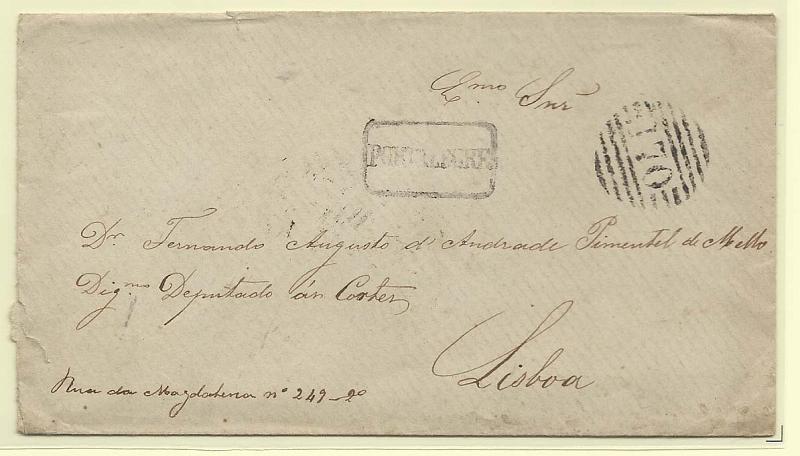 Exmo Snr
PORTALEGRE
170
Dr. Fernando Augusto d'Andrade Pimentel de Mello
Digmo Deputado ás Cortes
Lisboa
Rua da Magdalena nº 249-2º